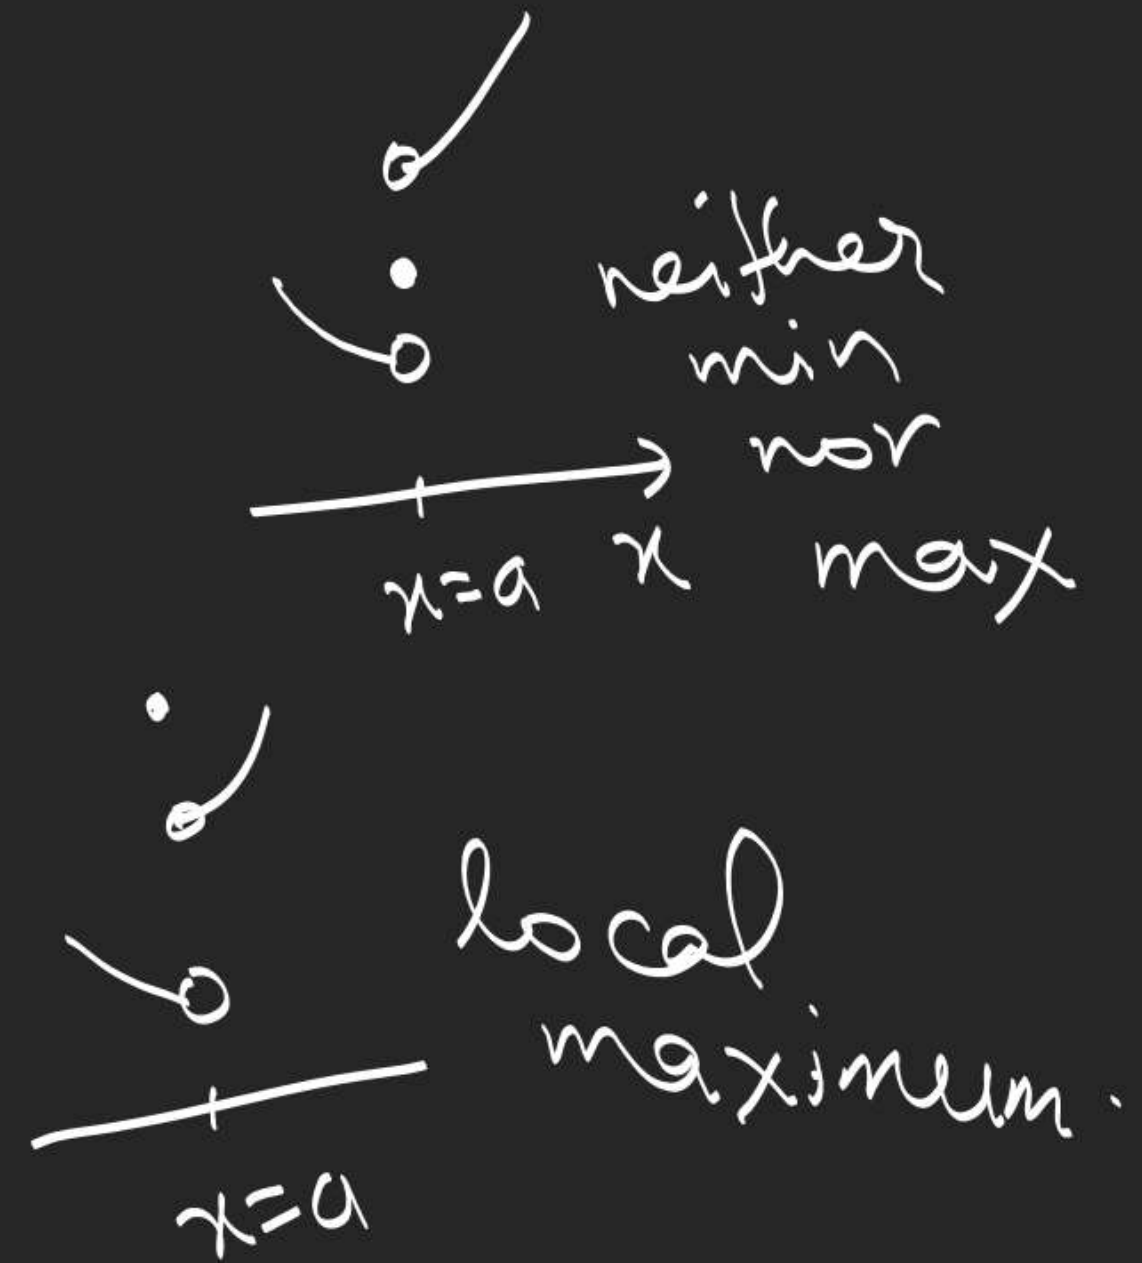 neither
min
nor
x=a x max
local
maximum.
x=a